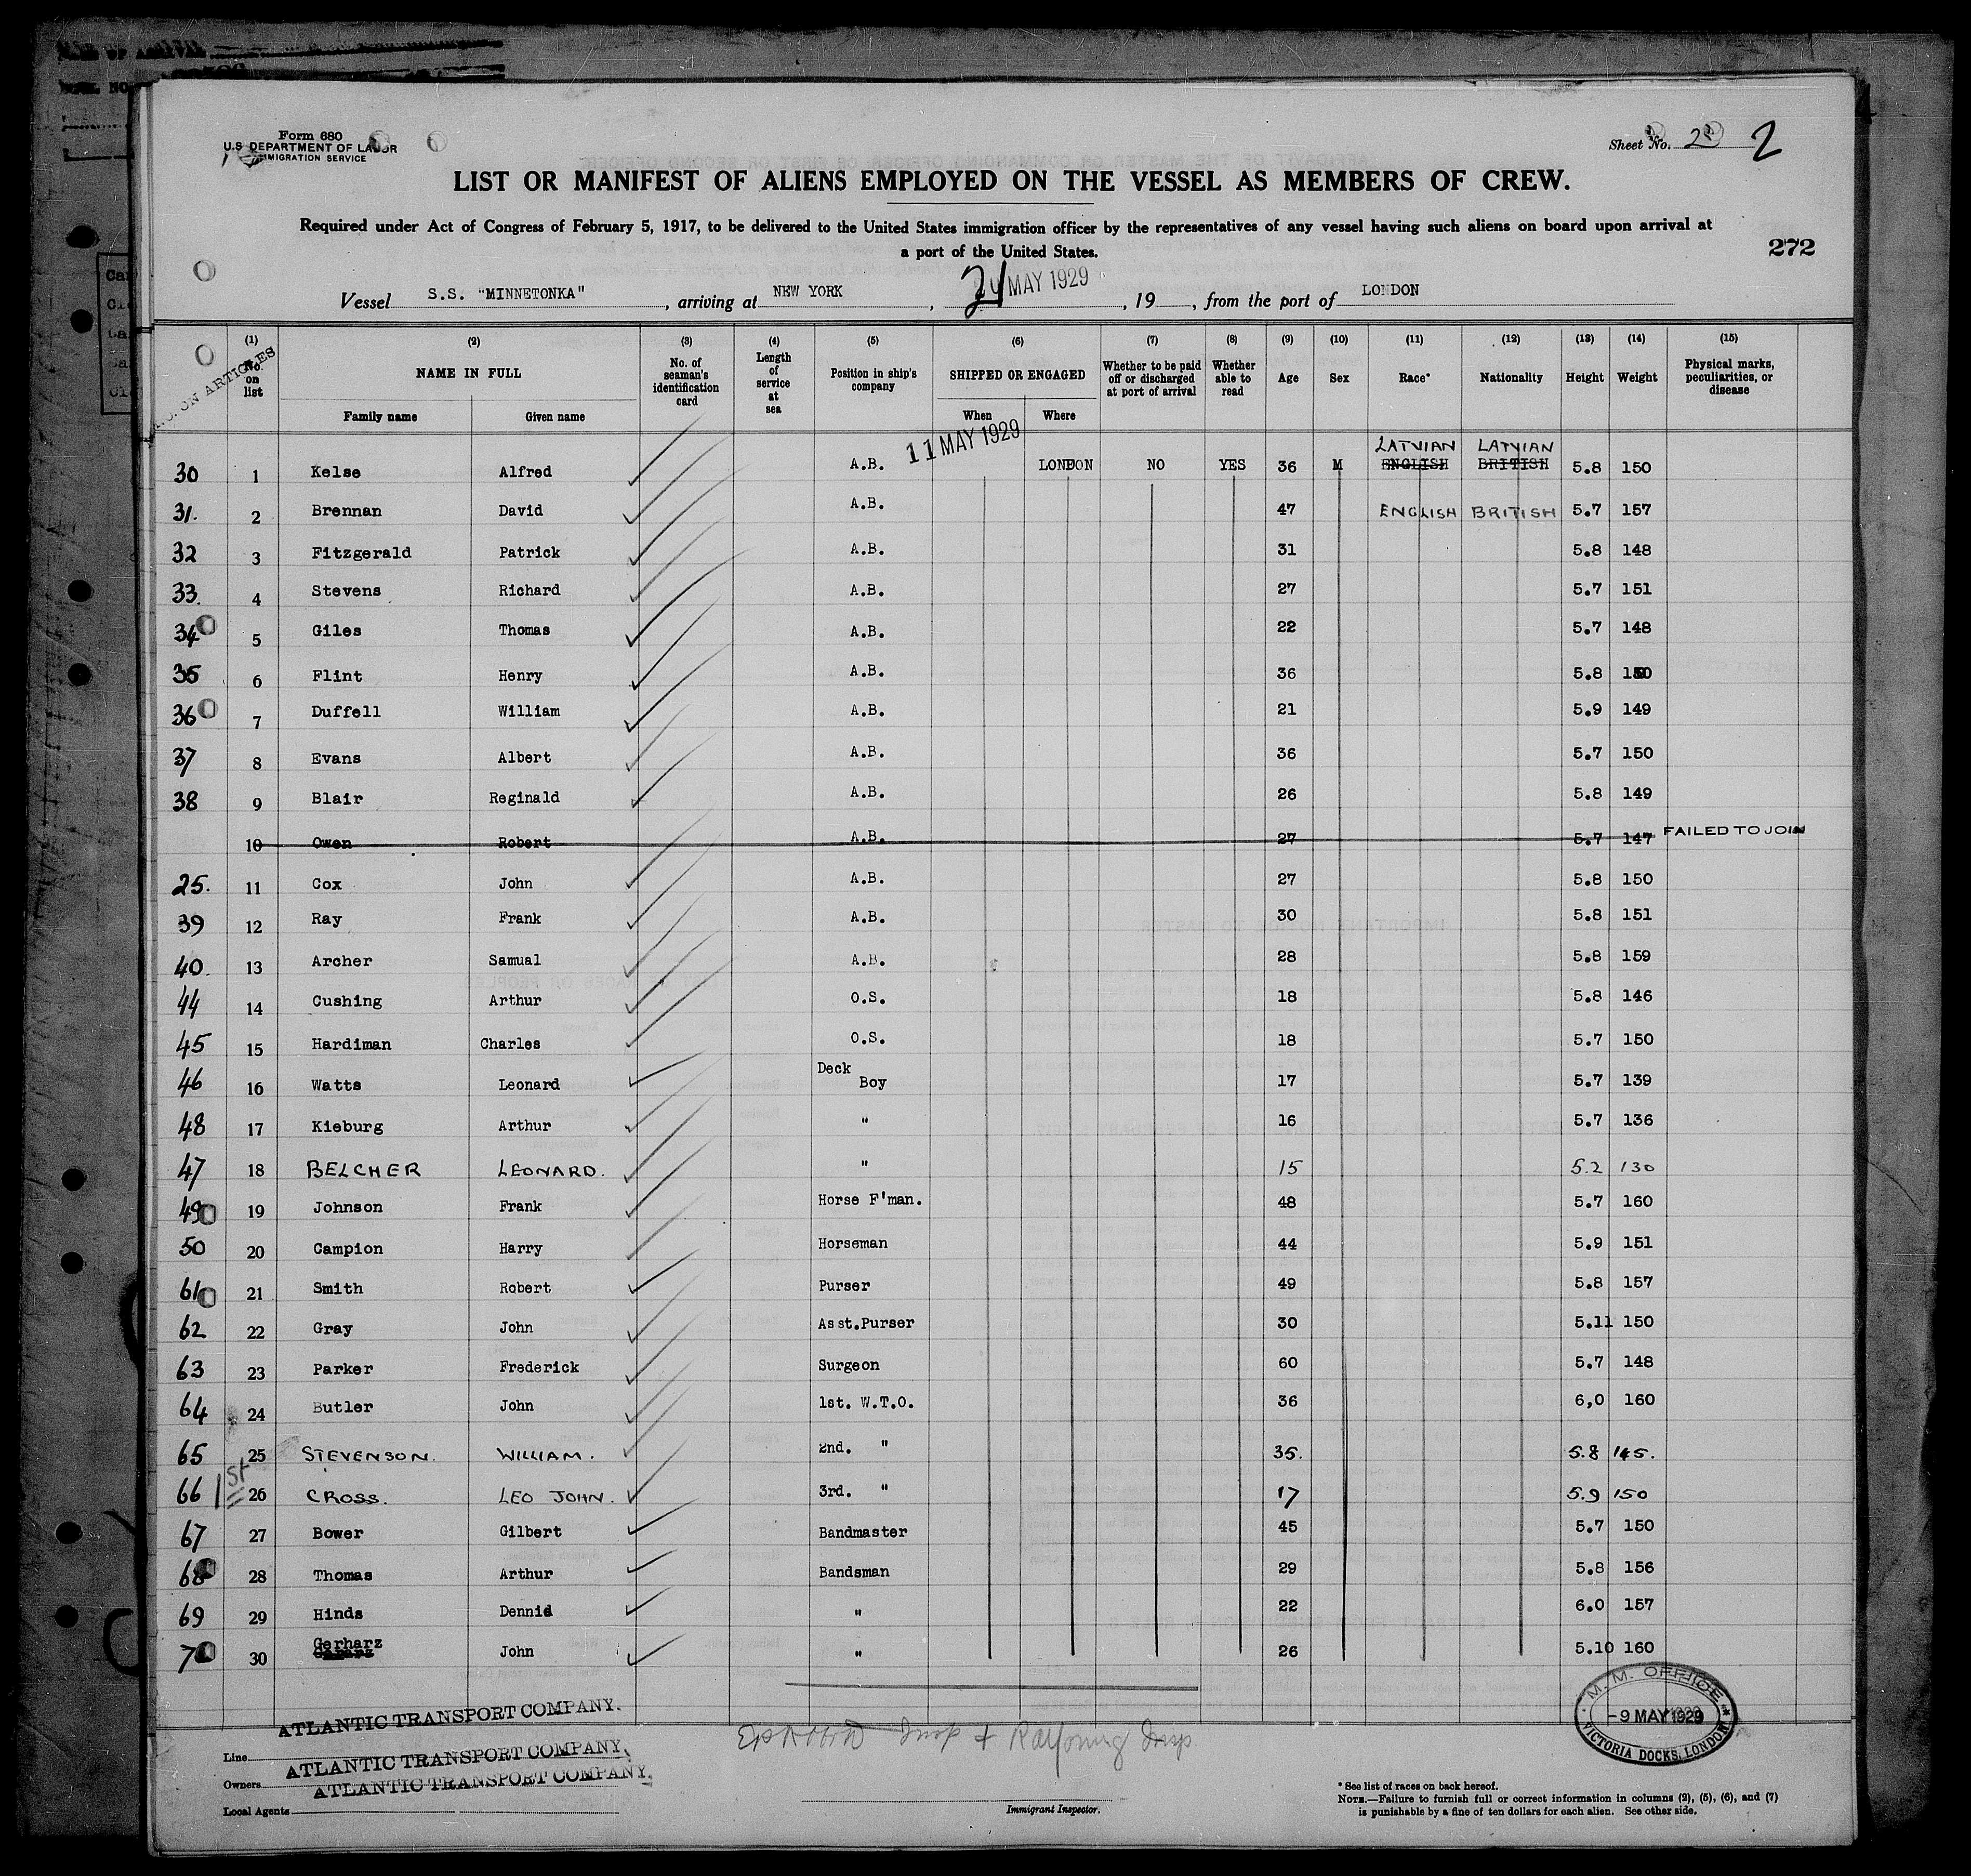 Form 680
U.S. DEPARTMENT OF LABOR
IMMIGRATION SERVICE
Sheet No. 2 2
LIST OR MANIFEST OF ALIENS EMPLOYED ON THE VESSEL AS MEMBERS OF CREW.
Required under Act of Congress of February 5, 1917, to be delivered to the United States immigration officer by the representatives of any vessel having such aliens on board upon arrival at
a port of the United States.
272
Vessel S.S. "MINNETONKA", arriving at NEW YORK, 21 MAY 1929, 19, from the port of LONDON
NO. ON ARTICLES
(1) (2) (3) (4) (5) (6) (7) (8) (9) (10) (11) (12) (13) (14) (15)
No. on list NAME IN FULL No. of seaman's identification card Length of service at sea Position in ship's company SHIPPED OR ENGAGED Whether to be paid off or discharged at port of arrival Whether able to read Age Sex Race* Nationality Height Weight Physical marks, peculiarities, or disease
Family name Given name When Where
11 MAY 1929 LATVIAN LATVIAN
30 1 Kelse Alfred A.B. LONDON NO YES 36 M ENGLISH BRITISH 5.8 150
31. 2 Brennan David A.B. 47 ENGLISH BRITISH 5.7 157
32 3 Fitzgerald Patrick A.B. 31 5.8 148
33. 4 Stevens Richard A.B. 27 5.7 151
34 5 Giles Thomas A.B. 22 5.7 148
35 6 Flint Henry A.B. 36 5.8
36 7 Duffell William A.B. 21 5.9 149
37 8 Evans Albert A.B. 36 5.7 150
38 9 Blair Reginald A.B. 26 5.8 149
10 Owen Robert A.B. 27 5.7 147 FAILED TO JOIN
25. 11 Cox John A.B. 27 5.8 150
39 12 Ray Frank A.B. 30 5.8 151
40. 13 Archer Samual A.B. 28 5.8 159
44 14 Cushing Arthur O.S. 18 5.8 146
45 15 Hardiman Charles O.S. 18 5.7 150
46 16 Watts Leonard Deck Boy 17 5.7 139
48 17 Kieburg Arthur " 16 5.7 136
47 18 BELCHER LEONARD. " 15 5.2 130
49 19 Johnson Frank Horse F'man. 48 5.7 160
50 20 Campion Harry Horseman 44 5.9 151
61 21 Smith Robert Purser 49 5.8 157
62 22 Gray John Asst.Purser 30 5.11 150
63 23 Parker Frederick Surgeon 60 5.7 148
64 24 Butler John 1st. W.T.O. 36 6,0 160
65 25 STEVENSON. WILLIAM. 2nd. " 35. 5.8 145.
66 1st 26 CROSS. LEO JOHN. 3rd. " 17 5.9 150
67 27 Bower Gilbert Bandmaster 45 5.7 150
68 28 Thomas Arthur Bandsman 29 5.8 156
69 29 Hinds Dennid " 22 6.0 157
Gerharz
70 30 John " 26 5.10 160
M. M. OFFICE
-9 MAY 1929
VICTORIA DOCKS, LONDON
ATLANTIC TRANSPORT COMPANY.
Line ATLANTIC TRANSPORT COMPANY.
Owners ATLANTIC TRANSPORT COMPANY.
Local Agents
Immigrant Inspector.
* See list of races on back hereof.
NOTE.—Failure to furnish full or correct information in columns (2), (5), (6), and (7)
is punishable by a fine of ten dollars for each alien. See other side.